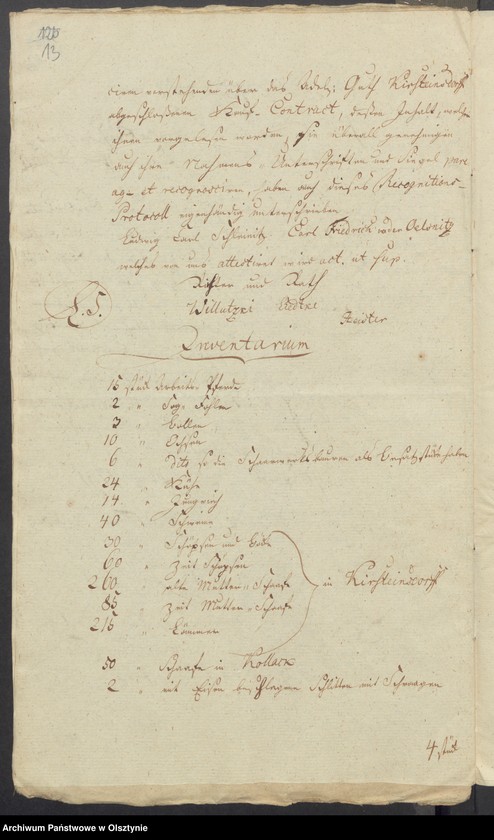 120
13
einen vorstehenden über das Adel: Guth Kirsteinsdorff
abgeschloßenen Kauf-Contract, deßen Inhalt, welcher
ihnen vorgelesen worden, sie überall genehmigen
auch ihre Nahmens-Unterschriften und Siegel pure
ag- et recognosciren, haben auch dieses Recognitions-
Protocoll eigenhändig unterschrieben
Ludwig Carl Carl Friedrich von der Oelsnitz
welches von uns attestiret wird act. ut sup.
Richter und Rath
Willutzki
L. S.
Inventarium
15 stück Arbeits-Pferde
2 " Fohlen
3 " Bollen
10 " Ochsen
6 " dito so die Schaarwerksbauren als Besatzstücke haben
24 " Kühe
14 " Jungvieh
40 " Schweine
30 " Schöpsen und Böcke
60 " Zeit Schöpsen
260 " alte Mutter-Schaafe in Kirsteinsdorff
85 " Zeit Mutter-Schaafe
215 " Lämmer
50 " Schaafe in
2 " mit Eisen beschlagene Schlitten mit
4 stück
Archiwum Państwowe w Olsztynie